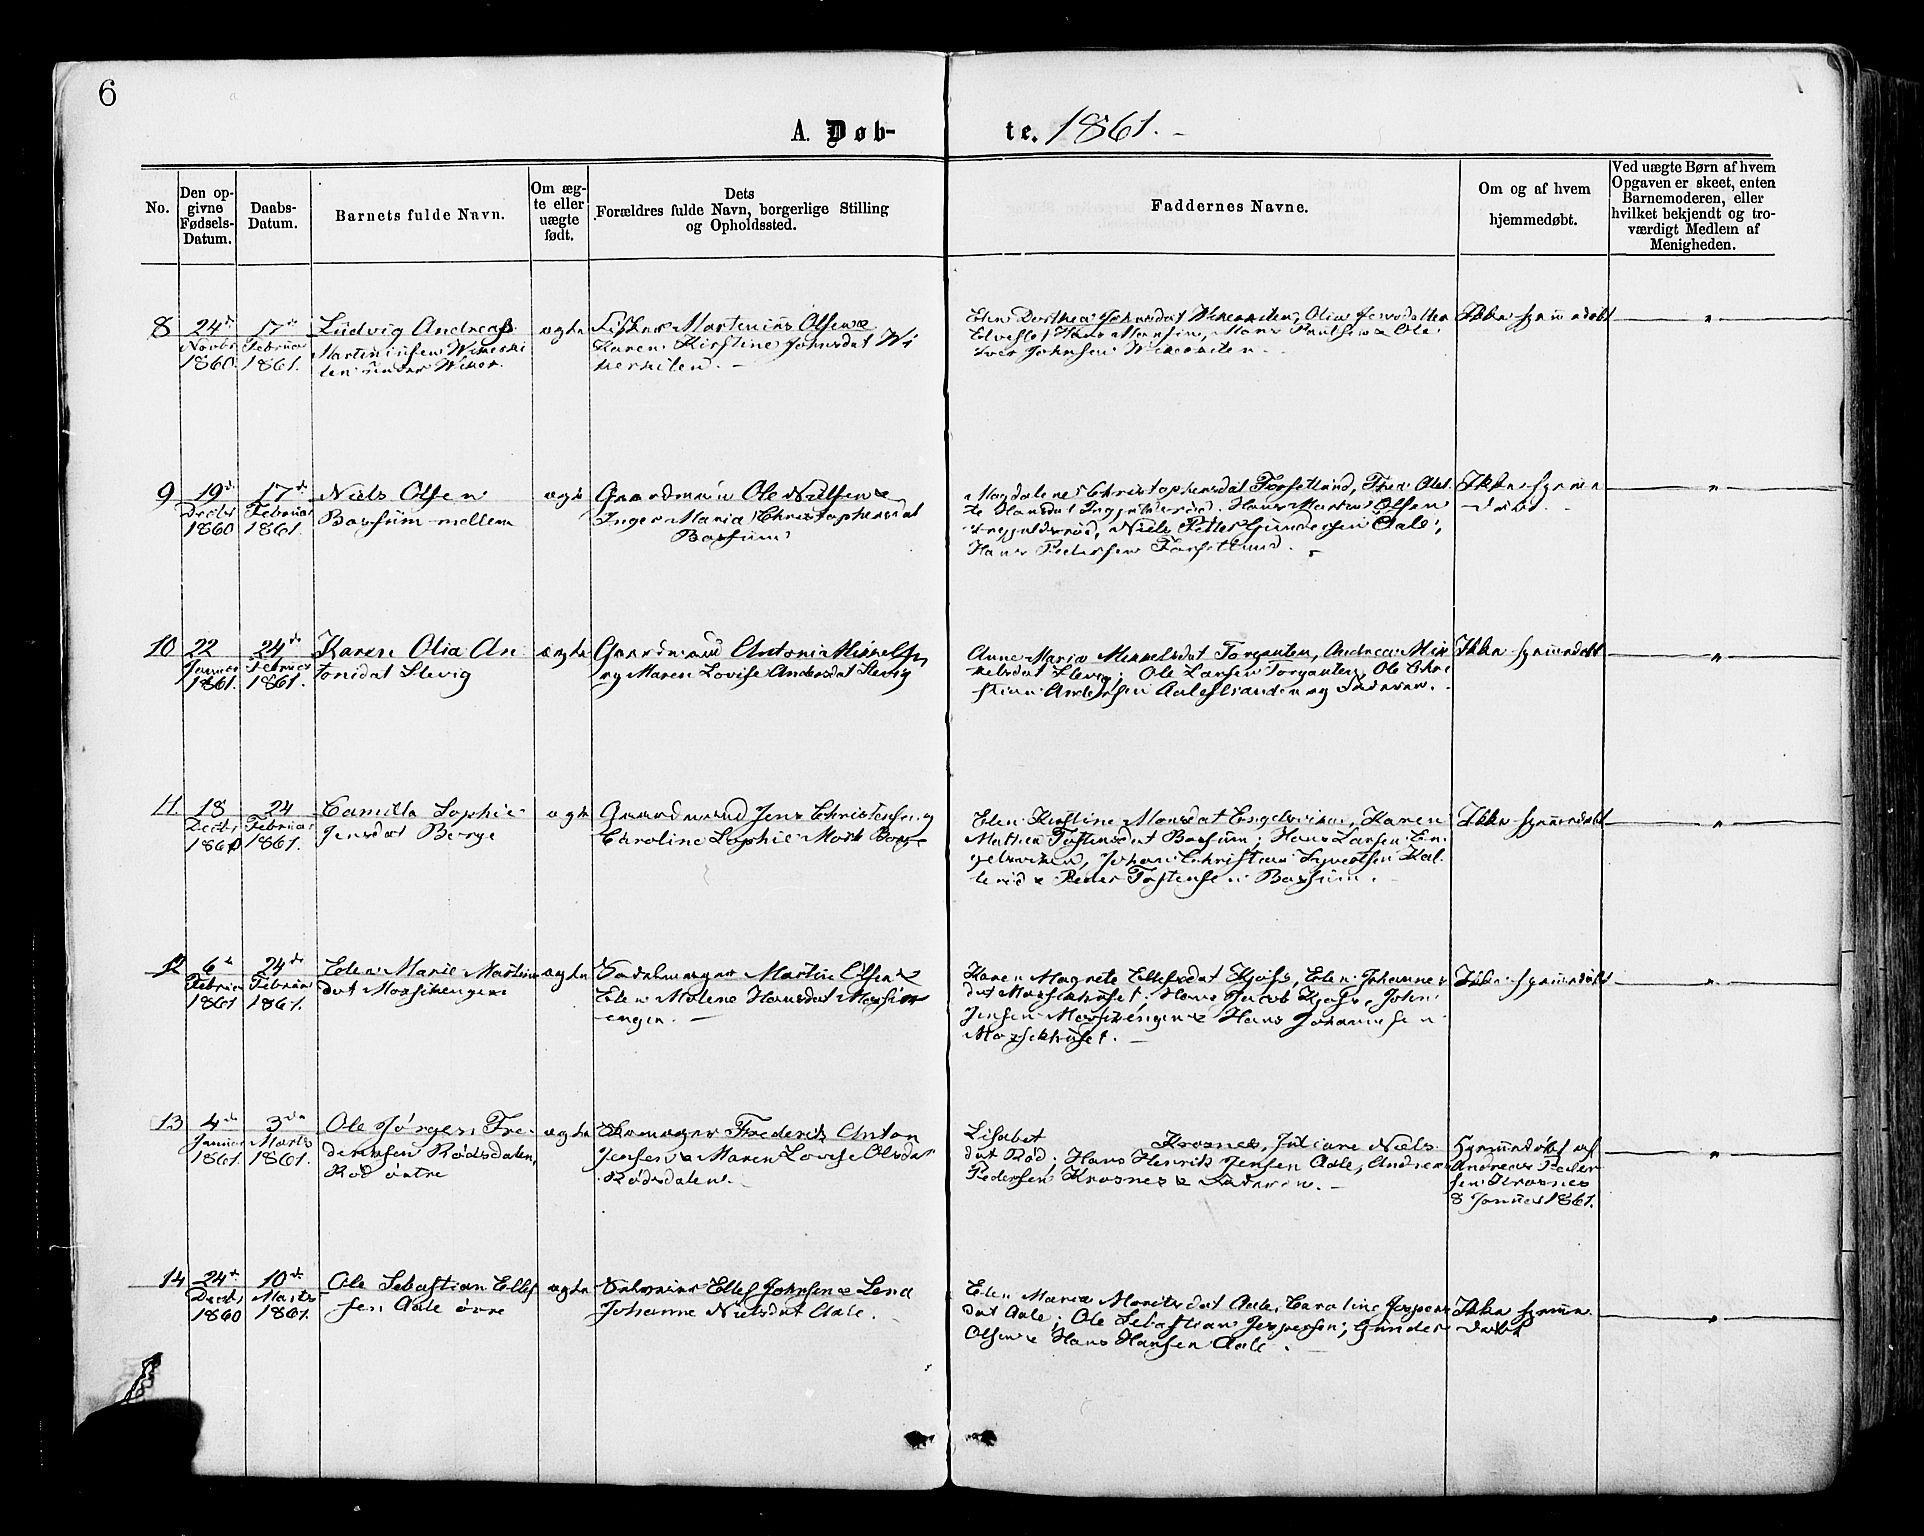 6
A. Døb-
te. 1861.
No.
Den op-
givne
Fødsels-
Datum.
Daabs-
Datum.
Barnets fulde Navn.
Om æg-
te eller
uægte
født.
Dets
Forældres fulde Navn, borgerlige Stilling
og Opholdssted.
Faddernes Navne.
Om og af hvem
hjemmedøbt.
Ved uægte Børn af hvem
Opgaven er skeet, enten
Barnemoderen, eller
hvilket bekjendt og tro-
værdigt Medlem af
Menigheden.
8
24de
Novbr
1860
17de
Februar
1861.
Ludvig Andreas
Martiniusen
ægte
Fisker Martinius Olsen &
Karen Kirstine Johnsdat Wi
kerkilen.
Elen Dorthea Johnsdat Wikerkilen, Olia
Hans Monsen, Mons Paulsen & Ole
Iver Johnsen Wikerkilen.
Ikke hjemmedøbt
"
9
19de
Decbr
1860
17de
Februar
1861.
Niels Olsen
Bossum mellem
ægte
Gaardmand Ole Nielsen &
Inger Maria Christophersdat
Bossum
Magdalene Christophersdat Forsetlund, Thea Olet-
te Hansdat Hans Martin Olsen
Niels Petter Gundersen Aale,
Hans Pedersen Forsetlund.
Ikke hjemme
døbt.
"
10
22
Januar
1861.
24de
Februar
1861.
Karen Olia An
tonidat Slevig
ægte
Gaardmand Antoni Mikkelsen
og Maren Lovise Andersdat Slevig
Anne Maria Mikkelsdat Torgauten, Andrea Mik
kelsdat Slevig, Ole Larsen Torgauten, Ole Chri
stian Andersen Aalestranden og Faderen.
Ikke hjemmedøbt
"
11.
18
Decbr
1860
24
Februar
1861.
Camilla Sophie
Jensdat Berge
ægte
Gaardmand Jens Christensen og
Caroline Sophie Berge
Elen Kirstine Monsdat Engelsviken, Karen
Mathea Tostensdat Bossum, Hans Larsen En
gelsviken, Johan Christian Syvertsen Kal
lerød & Peder Tostensen Bossum.
Ikke hjemmedøbt
"
12
6te
Februar
1861
24de
Februar
1861.
Elen Marie Martins
dat Mossikengen
ægte
Martin Olsen &
Elen Malene Hansdat Mossik
engen.
Karen Magrete Ellefsdat Kjøis, Elen Johannes
dat Hans Jacob Kjøis, John
Jensen Mossikengen & Hans Johannesen
Ikke hjemmedøbt
"
13
4de
Januar
1861.
3die
Marts
1861.
Ole Jørgen Fre
deriksen Rødsdalen,
Rød østre
ægte
Frederik Anton
Jensen & Maren Lovise Olsdat
Rødsdalen.
Lisabet Krosnes, Juliane Niels
dat Rød, Hans Henrik Jensen Aale, Andreas
Pedersen Krosnes & Faderen.
Hjemmedøbt af
Andreas Peder
sen Krosnes
8 Januar 1861.
"
14
24de
Decbr
1860
10de
Marts
1861.
Ole Sebastian Ellef
sen Aale øvre
ægte
Ellef Johnsen & Lena
Johanne Nielsdat Aale.
Elen Maria Moritsdat Aale, Caroline Jespers
dat Aale, Ole Sebastian Jespersen, Gunder
Olsen & Hans Hansen Aale.
Ikke hjemme
døbt
"